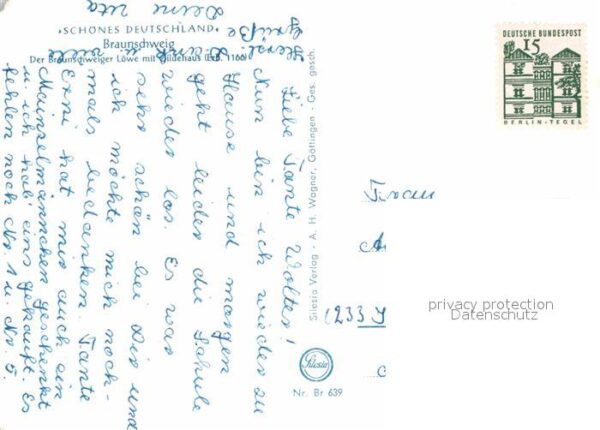 »SCHÖNES DEUTSCHLAND«
Braunschweig
Der Braunschweiger Löwe mit Gildehaus (erb. 1166)
Liebe Tante Wolter!
Nun bin ich wieder zu
Hause und morgen
geht leider die Schule
wieder los. Es war
sehr schön bei Dir und
ich möchte mich noch-
mals bedanken. Tante
Erni hat mir auch ein
Mainzelmännchen geschenkt
u. ich hab' eins gekauft. Es
fehlen noch Nr. 1 u. Nr. 5.
Herzl.
Grüße
Deine
Silesia Verlag · A. H. Wagner, Göttingen · Ges. gesch.
Silesia
Nr. Br 639
DEUTSCHE BUNDESPOST
15
BERLIN-TEGEL
Frau
(233
privacy protection
Datenschutz